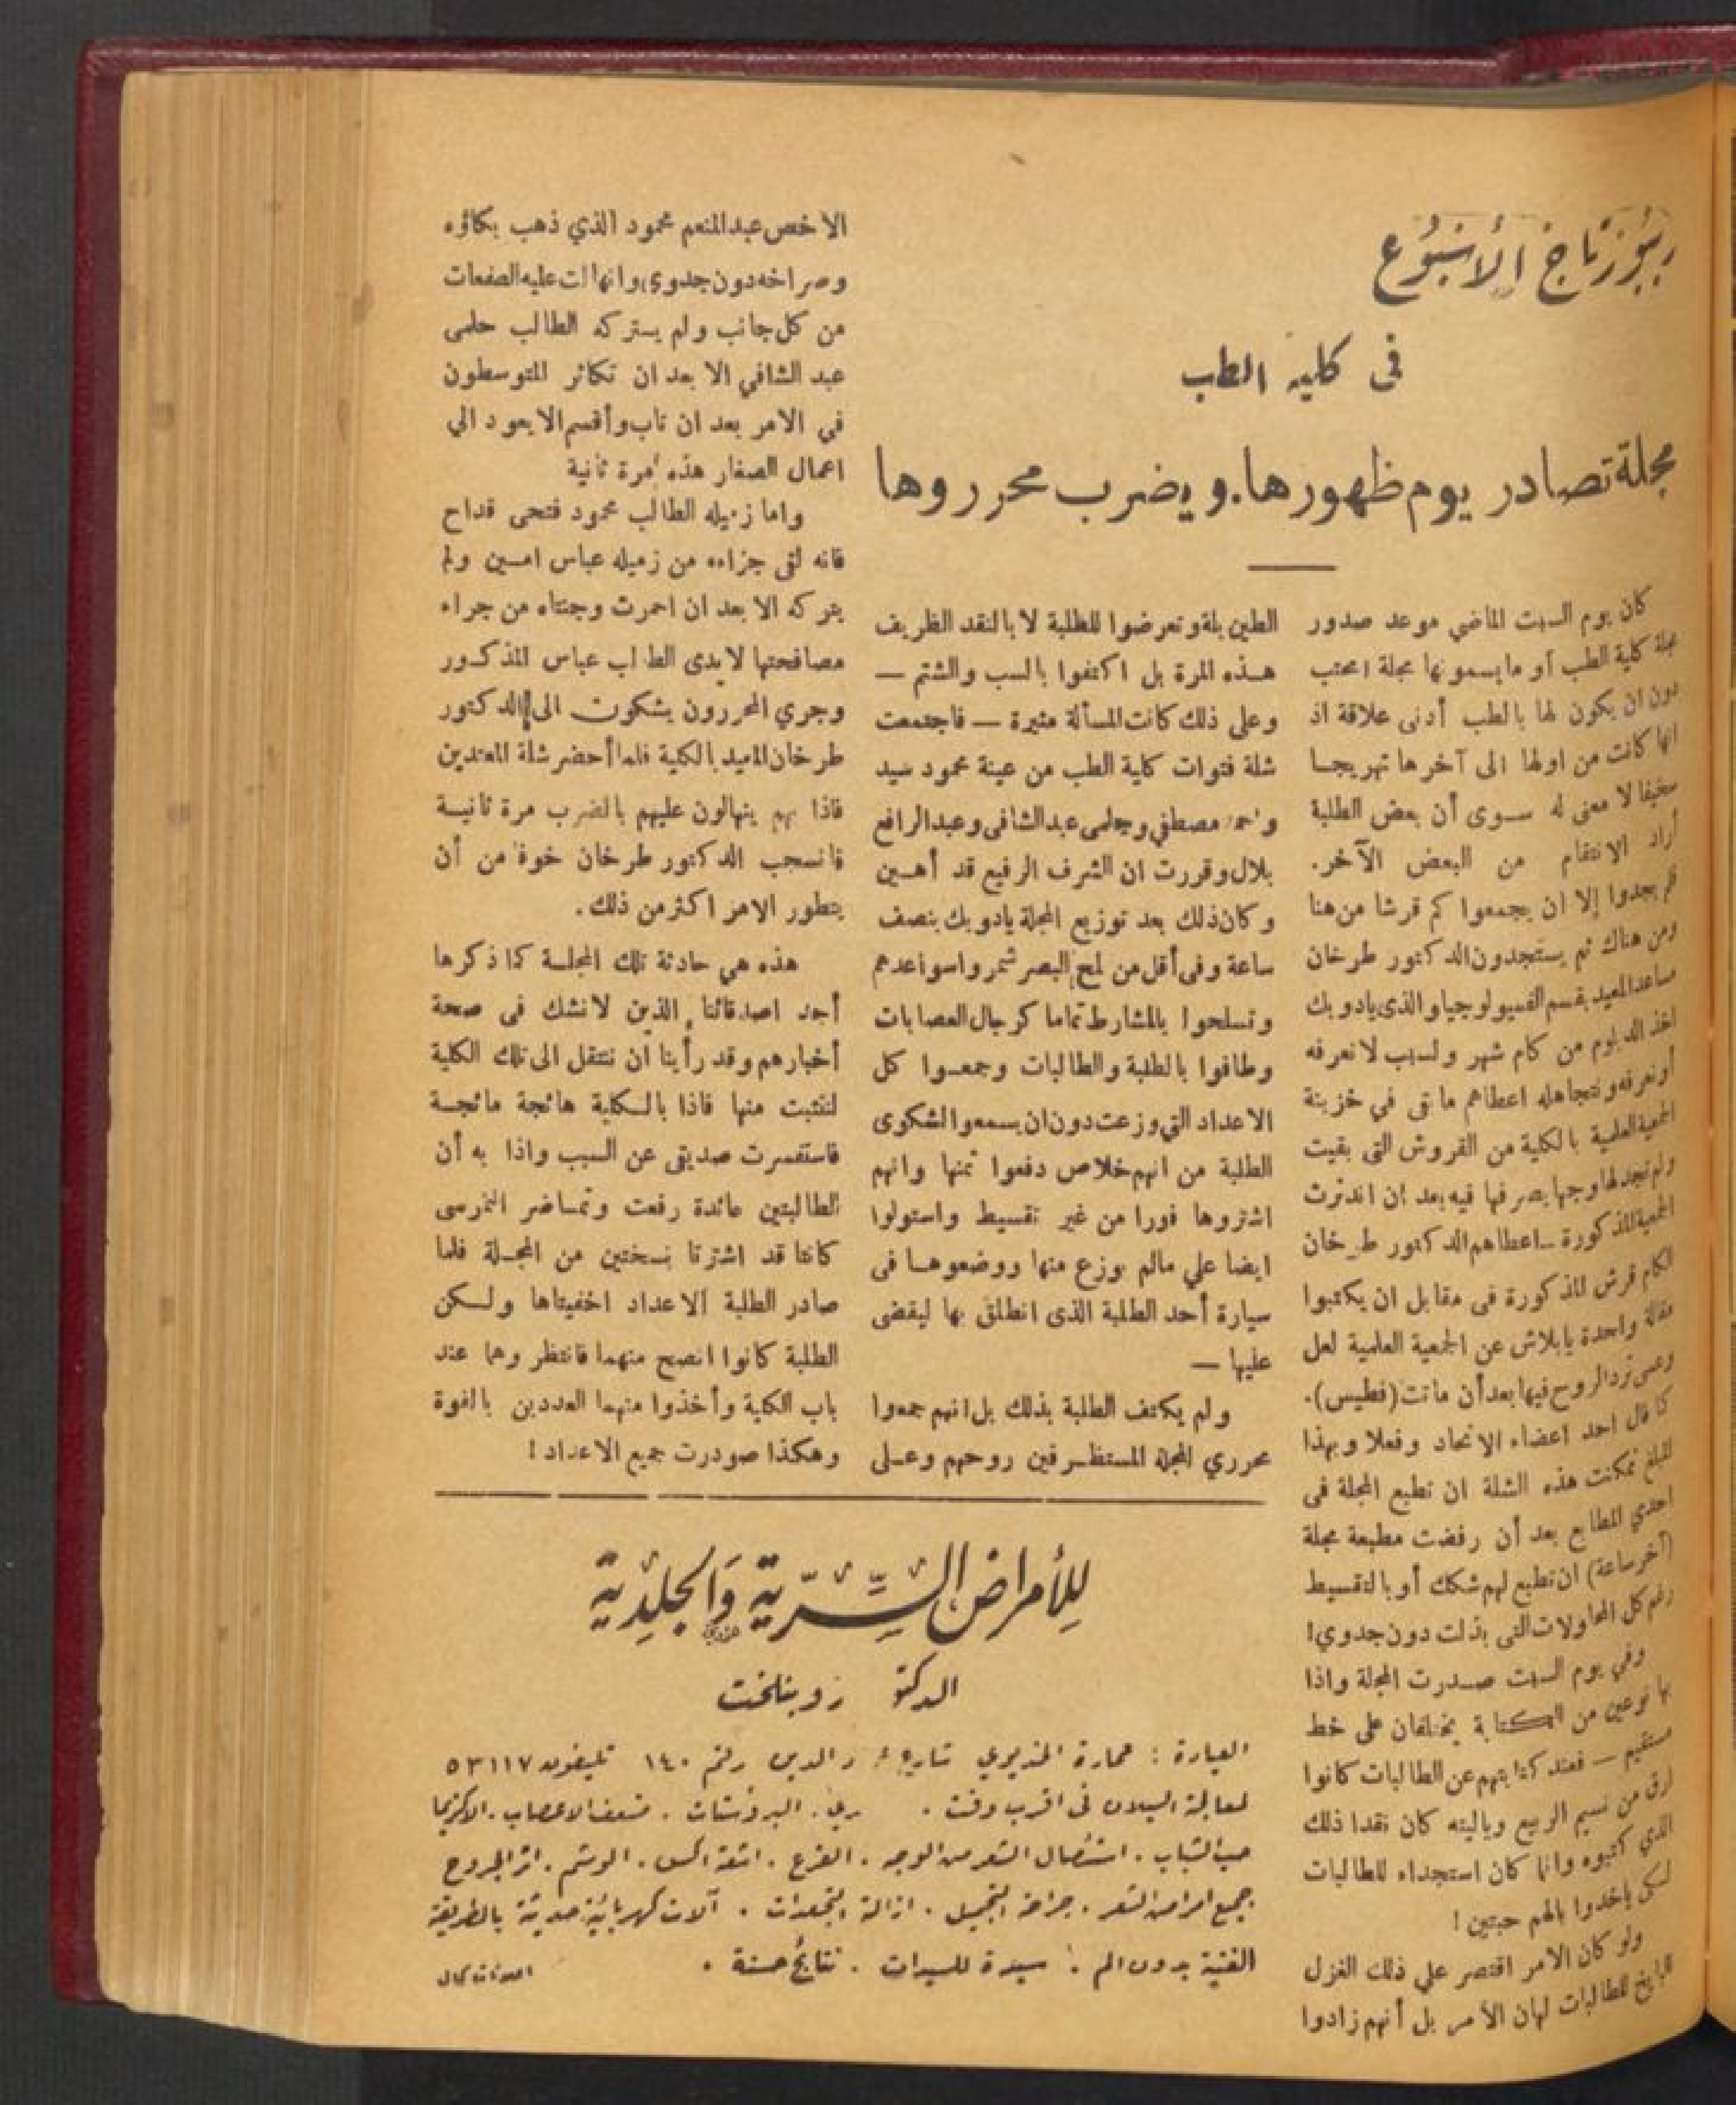 ريبورتاج الأسبوع
فى كلية الطب
مجلة تصادر يوم ظهورها. ويضرب محرروها
كان يوم السبت الماضي موعد صدور
مجلة كلية الطب أو ما يسمونها مجلة
دون ان يكون لها بالطب أدنى علاقة اذ
انها كانت من اولها الى آخرها تهريجا
سخيفا لا معنى له سوى أن بعض الطلبة
أراد الانتقام من البعض الآخر.
فلم يجدوا إلا ان يجمعوا كم قرشا من هنا
ومن هناك ثم يستجدون الدكتور طرخان
مساعد المعيد بقسم الفسيولوجيا والذى يادوبك
اخذ الدبلوم من كام شهر ولسبب لا نعرفه
أو نعرفه ونتجاهله اعطاهم ما تبقى في خزينة
الجمعية العلمية بالكلية من القروش التى بقيت
ولم تجد لها وجها يصرفها فيه بعد ان اندثرت
الجمعية المذكورة ـ اعطاهم الدكتور طرخان
الكام قرش المذكورة فى مقابل ان يكتبوا
مقالة واحدة يابلاش عن الجمعية العلمية لعل
وعسى ترد الروح فيها بعد أن ماتت (فطيس).
كما قال احد اعضاء الاتحاد وفعلا وبهذا
المبلغ تمكنت هذه الشلة ان تطبع المجلة فى
احدي المطابع بعد أن رفضت مطبعة مجلة
(آخر ساعة) ان تطبع لهم شكك أو بالتقسيط
رغم كل المحاولات التى بذلت دون جدوي!
وفي يوم السبت صدرت المجلة واذا
بها نوعين من الكتابة يختلفان على خط
مستقيم — فعند كتابتهم عن الطالبات كانوا
ارق من نسيم الربيع وياليته كان نقدا ذلك
الذي كتبوه وانما كان استجداء للطالبات
لكى ياخدوا بالهم حبتين!
ولو كان الامر اقتصر علي ذلك الغزل
البايخ للطالبات لهان الأمر بل أنهم زادوا
الطين بلة وتعرضوا للطلبة لا بالنقد الظريف
هذه المرة بل اكتفوا بالسب والشتم —
وعلى ذلك كانت المسألة مثيرة — فاجتمعت
شلة فتوات كلية الطب من عينة محمود سيد
مصطفي وحلمى عبدالشافى وعبدالرافع
بلال وقررت ان الشرف الرفيع قد أهين
وكان ذلك بعد توزيع المجلة يادوبك بنصف
ساعة وفى أقل من لمح البصر شمروا سواعدهم
وتسلحوا بالمشارط تماما كرجال العصابات
وطافوا بالطلبة والطالبات وجمعوا كل
الاعداد التي وزعت دون ان يسمعوا لشكوى
الطلبة من انهم خلاص دفعوا ثمنها وانهم
اشتروها فورا من غير تقسيط واستولوا
ايضا علي مالم يوزع منها ووضعوها فى
سيارة أحد الطلبة الذى انطلق بها ليقضى
عليها —
ولم يكتف الطلبة بذلك بل انهم جمعوا
محرري المجلة المستظرفين روحهم وعلى
الاخص عبدالمنعم محمود الذي ذهب بكاؤه
وصراخه دون جدوى وانهالت عليه الصفعات
من كل جانب ولم يستركه الطالب حلمى
عبد الشافي الا بعد ان تكاثر المتوسطون
فى الامر بعد ان تاب وأقسم الا يعود الي
اعمال الصغار هذه مرة ثانية
واما زميله الطالب محمود فتحى قداح
فانه لقى جزاءه من زميله عباس امين ولم
يتركه الا بعد ان احمرت وجنتاه من جراء
مصافحتها لايدى الطالب عباس المذكور
وجري المحررون يشكون الى الدكتور
طرخان المعيد بالكلية فلما أحضر شلة المعتدين
فاذا بهم ينهالون عليهم بالضرب مرة ثانية
فانسحب الدكتور طرخان خوفا من أن
يتطور الامر اكثر من ذلك.
هذه هي حادثة تلك المجلة كما ذكرها
أحد اصدقائنا الذين لانشك فى صحة
أخبارهم وقد رأينا ان ننتقل الى تلك الكلية
لنتثبت منها فاذا بالكلية هائجة مائجة
فاستفسرت صديقى عن السبب واذا به أن
الطالبتين عائدة رفعت وتماضر
كانتا قد اشترتا نسختين من المجلة فلما
صادر الطلبة الاعداد اخفيتاها ولكن
الطلبة كانوا انصح منهما فانتظروهما عند
باب الكلية وأخذوا منهما العددين بالقوة
وهكذا صودرت جميع الاعداد!
للأمراض السّريّة وَالجلديّة
الدكتور
العيادة : عمارة الخديوي شارع عماد الدين رقم ١٤٠ تليفون ٥٣١١٧
لمعالجة السيلان فى اقرب وقت . البروستات . ضعف الاعصاب . الاكزيما
حب الشباب . استئصال الشعر من الوجه . القرع . اشعة اكس . الوشم . اثر الجروح
جميع امراض الشعر . جراحة التجميل . ازالة التجعدات . آلات كهربائية حديثة بالطريقة
الفنية بدون الم . سيدة للسيدات . نتائج حسنة .